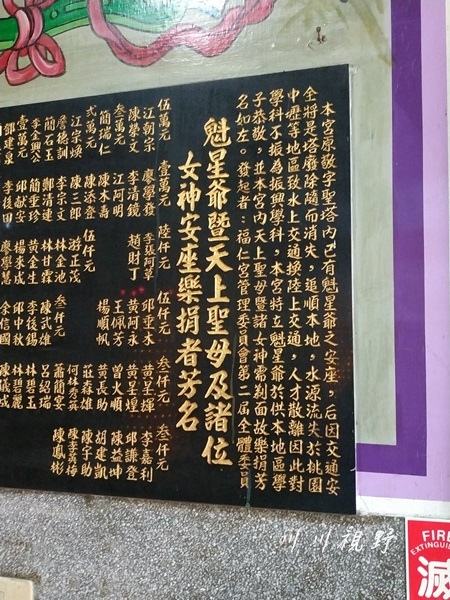 本宮原敬字聖塔內已有魁星爺之安座,后因交通安
全將是塔廢除隨而消失,追順本地,水源流失於桃園
中壢等地區致水上交通換陸上交通,人才散離因此對
學科不振為振興學科,本宮特立魁星爺於供本地區學
子恭敬,並本宮內天上聖母暨諸女神需剎面故樂捐芳
名如左。發起者:福仁宮管理委員會第二屆全體委員
魁星爺暨天上聖母及諸位
女神安座樂捐者芳名
伍萬元 壹萬元 陸仟元 伍仟元 叁仟元 叁仟元
江朝宗 廖學發 李張阿草 邱垂木 黃呈輝 李嘉利
陳榮文 李清鏡 趙財丁 黃阿永 黃呈煌 邱謙登
叁萬元 江阿明 王佩芳 曾火順 陳益坤
簡瑞仁 陳木壽 楊順帆 黃長助 胡建凱
弍萬元 陳添登 伍仟元 莊森雄 陳子助
江宗煥 陳三郎 游正茂 叁仟元 何林秀英 陳李英梅
詹德訓 李宗文 林金池 陳武雄 蕭簡宴 陳鳳彬
簡石玉 鄭清連 林甘霖 李後錫 呂紹瑞
李金興公 簡重珍 黃金生 邱中秋 林碧玉
壹萬元 邱獻安 楊來成 余信國 林碧麗
鄒建泉 李後田 廖學慧 陳儀成
川川視野
FIRE
EXTINGUISHER
滅